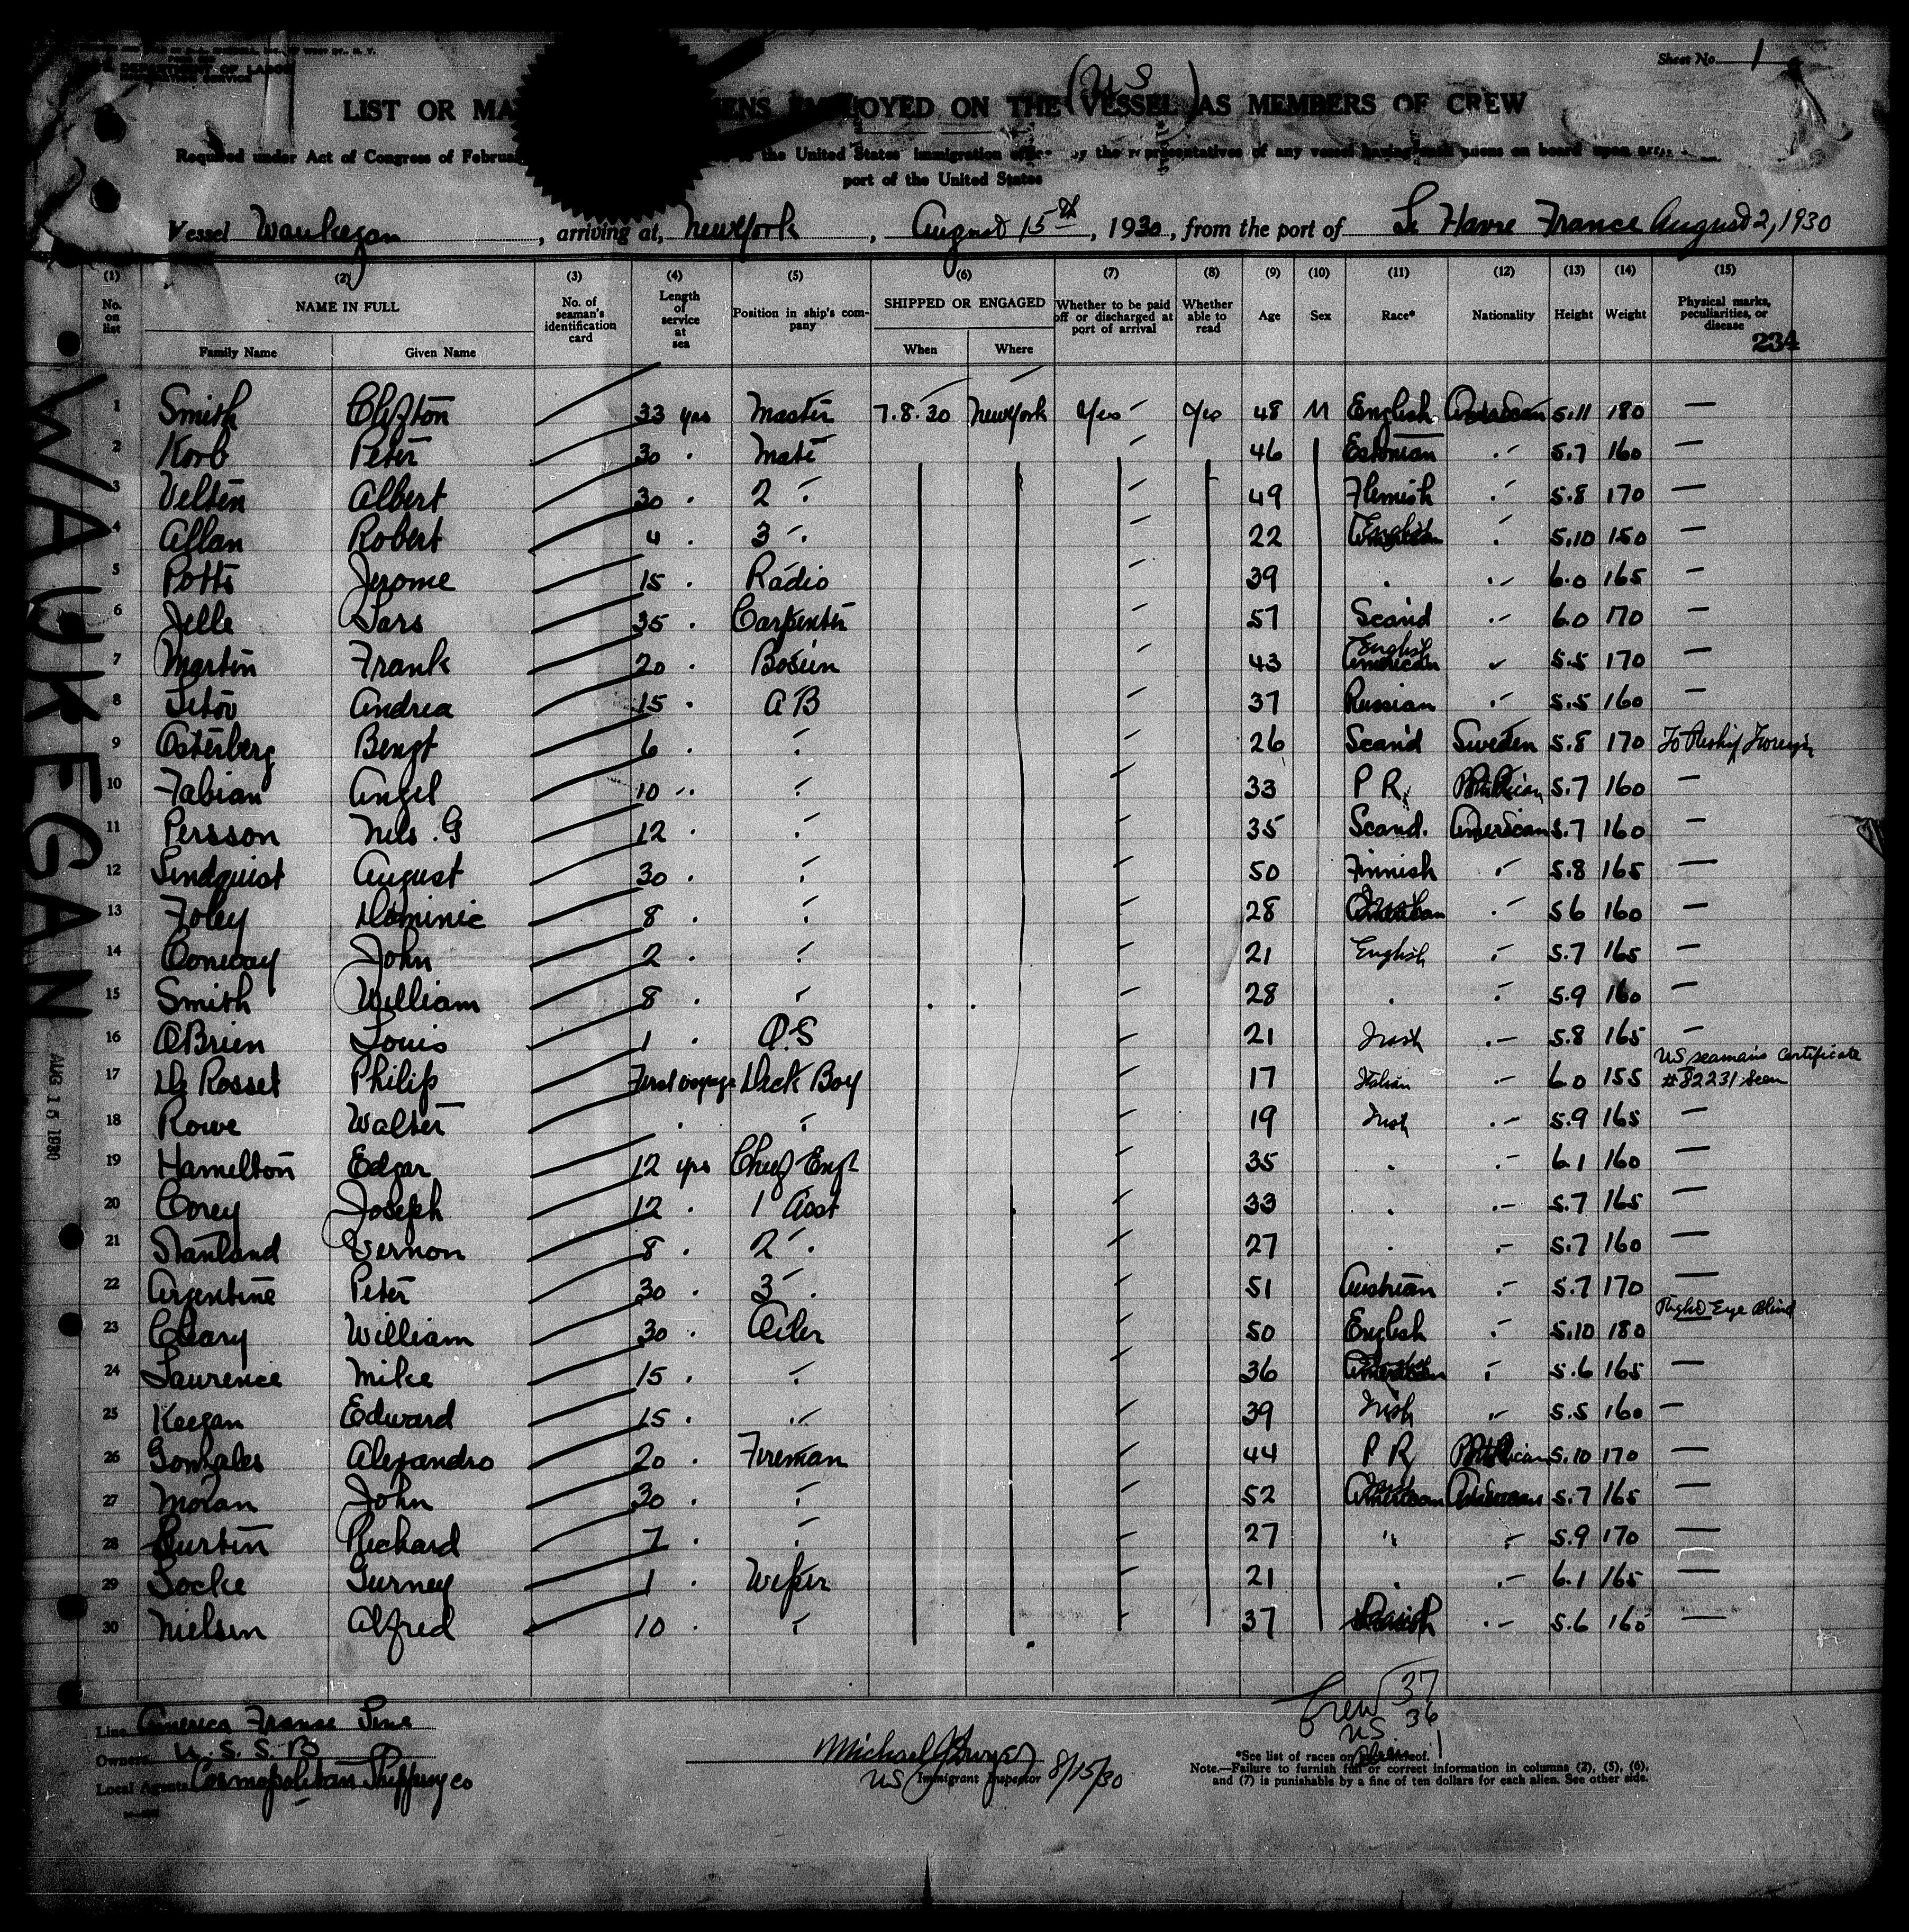 Sheet No. 1
DEPARTMENT OF LABOR
LIST OR MA ENS EMPLOYED ON THE (US VESSEL) AS MEMBERS OF CREW
Required under Act of Congress of Februa to the United States immigration by the representatives of any vessel having on board upon
port of the United States
Vessel Waukegan, arriving at, New York, August 15th, 1930, from the port of Le Havre France August 2, 1930
(1) (2) (3) (4) (5) (6) (7) (8) (9) (10) (11) (12) (13) (14) (15)
No. on list NAME IN FULL No. of seaman's identification card Length of service at sea Position in ship's company SHIPPED OR ENGAGED Whether to be paid off or discharged at port of arrival Whether able to read Age Sex Race* Nationality Height Weight Physical marks, peculiarities, or disease
Family Name Given Name When Where 234
1 Smith Clifton 33 yrs Master 7.8.30 New York Yes Yes 48 M English American 5.11 180 —
2 Korb Peter 30 . Mate 46 Estonian " 5.7 160 —
3 Velten Albert 30 . 2 " 49 Flemish " 5.8 170 —
4 Allan Robert 4 . 3 " 22 English " 5.10 150 —
5 Potts Jerome 15 . Radio 39 " " 6.0 165 —
6 Jelle Lars 35 . Carpenter 57 Scand " 6.0 170 —
7 Martin Frank 20 . Bosun 43 English American " 5.5 170 —
8 Titov Andrea 15 . A B 37 Russian " 5.5 160 —
9 Osterberg Bengt 6 . " 26 Scand Sweden 5.8 170 To Reship Foreign
10 Fabian Angel 10 " " 33 P R. 5.7 160 —
11 Persson Nels. G 12 . " 35 Scand. American 5.7 160 —
12 Lindquist August 30 . " 50 Finnish " 5.8 165 —
13 Foley Dominic 8 . " 28 " 5 6 160 —
14 Conway John 2 . " 21 English " 5.7 165 —
15 Smith William 8 . " 28 " " 5.9 160 —
16 OBrien Louis 1 . O.S 21 Irish " 5.8 165 —
17 De Rosset Philip First voyage Deck Boy 17 Italian " 6.0 155 US seaman's Certificate #82231 seen
18 Rowe Walter . " 19 Irish " 5.9 165 —
19 Hamelton Edgar 12 yrs Chief Engr 35 " " 6.1 160 —
20 Corey Joseph 12 . 1 Asst 33 " " 5.7 165 —
21 Stanland Vernon 8 . 2 " 27 " " 5.7 160 —
22 Argentine Peter 30 . 3 " 51 Austrian " 5.7 170 —
23 Cleary William 30 . Oiler 50 English " 5.10 180 Right Eye Blind
24 Laurence Mike 15 . " 36 " 5.6 165 —
25 Keegan Edward 15 . " 39 Irish " 5.5 160 —
26 Gonzales Alejandro 20 . Fireman 44 P R 5.10 170 —
27 Moran John 30 . " 52 American 5.7 165 —
28 Curtin Richard 7 . " 27 " " 5.9 170 —
29 Locke Gurney 1 . Wiper 21 " " 6.1 165 —
30 Nielsen Alfred 10 . " 37 " 5.6 165 —
WAUKEGAN
AUG 15 1930
Crew 37
US 36
1
Line America France Line
Owners U.S.S.B
Local Agents Cosmopolitan Shipping co
Michael
US Immigrant Inspector 8/15/30
*See list of races on hereof.
Note.—Failure to furnish full or correct information in columns (2), (5), (6),
and (7) is punishable by a fine of ten dollars for each alien. See other side.